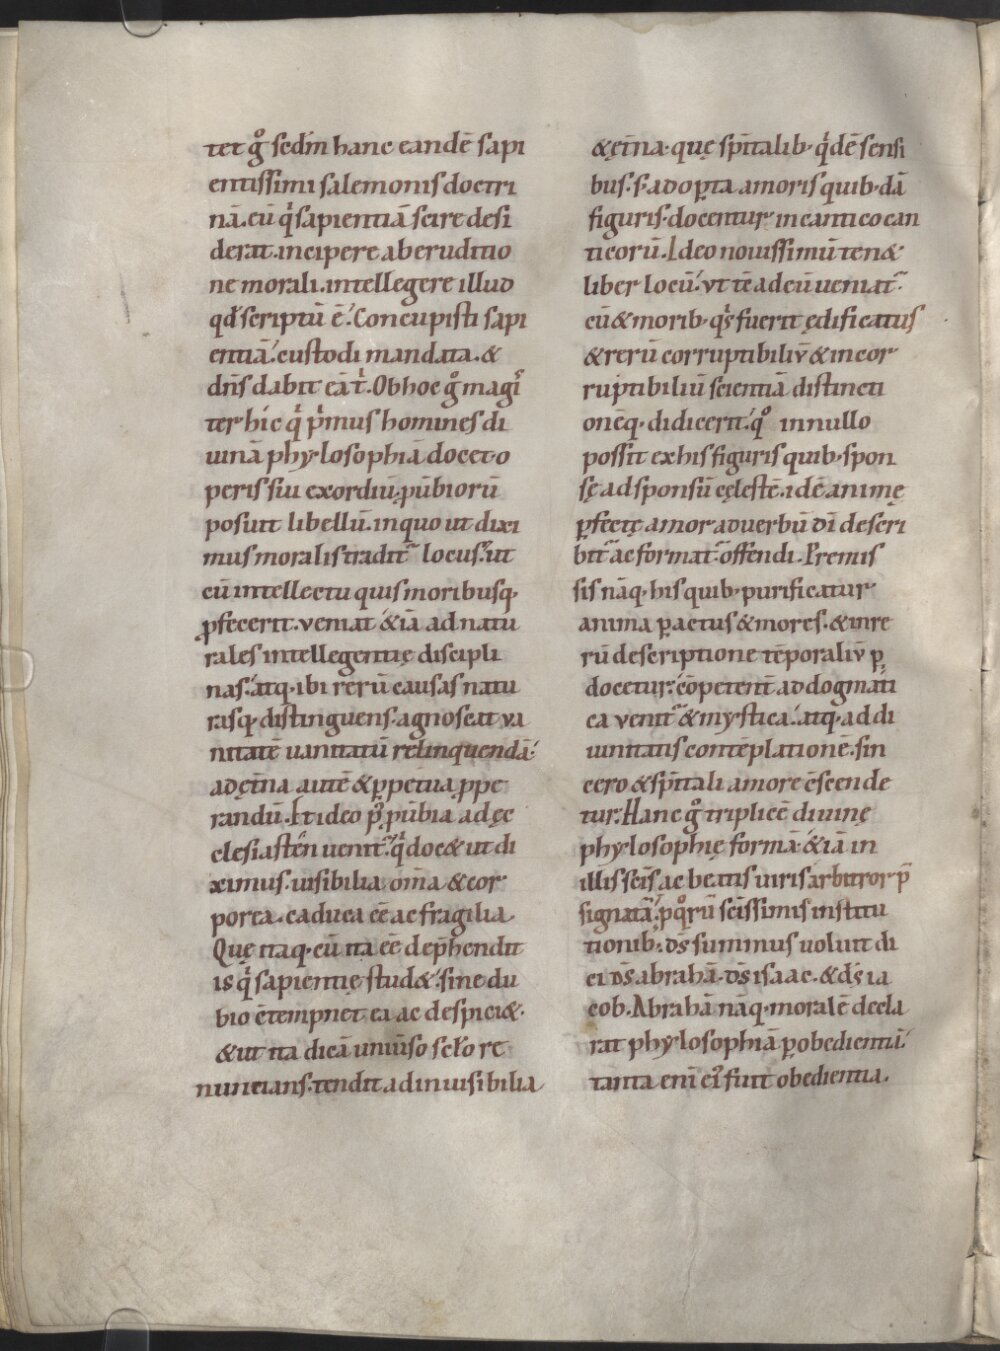 tet gͦ sedm̄ hanc eandē sapi
entissimi salemonis doctri
nā. cū qͥ sapientiā scire desi
derat. incipere ab eruditio
ne morali. intellegere illud
qđ scriptū ē. Concupisti sapi
entiā. custodi mandata. &
dn̄s dabit eā tͥ. Ob hoc gͦ magiͬ
ter hic qͥ pͥmus homines di
uinā phylosophiā docet. o
peris sui exordiū. ꝓūbiorū
posuit libellū. in quo ut dixi
mus moralis tradit᷑ locus. ut
cū intellectu quis moribusq.
ꝓfecerit. veniat & iā ad natu
rales intellegentię discipli
nas. atq. ibi rerū causas natu
rasq. distinguens. agnoscat va
nitatē uanitatū relinquendā.
ad ęt̄na autē & ꝑpetua ꝓpe
randū. Et ideo pꝰ ꝓūbia ad ęc
clesiasten uenit᷑. qͥ doc& ut di
ximus. uisibilia om̄a & cor
porea. caduca eē ac fragilia.
Quę itaq. cū ita eē dep̄hendit
is qͥ sapientię stud&. sine du
bio cōtempnet ea ac despici&.
& ut ita dicā uniūso scło re
nuncians. tendit ad inuisibilia
& ęt̄na. quę sp̄italib. qͥdē sensi
bus. s. adoꝑta amoris quib. dā
figuris. docentur in cantico can
ticorū. Ideo nouissimū ten&
liber locū. ut tē ad eū veniat᷑.
cū & morib. qͥs fuerit ędificatus
& rerū corruptibiliū & incor
ruptibiliū scientiā distincti
onēq. didicerit. qͦ in nullo
possit ex his figuris quib. spon
sę ad sponsū cęlestē. id ē animę
ꝑfectę amor ad verbū dī descri
bit᷑ ac format᷑. offendi. Premis
sis nāq. his quib. purificatur
anima ꝑ actus & mores. & in re
rū descriptione tēporaliū ꝑ
docetur. cōpetent᷑ ad dogmati
ca venit᷑ & mystica. atq. ad di
uinitatis contēplationē. sin
cero & sp̄itali amore cōscende
tur. Hanc gͦ triplicē diuinę
phylosophię formā. & iā in
illis scīs ac beatis uiris arbitror p̄
signatā. ꝓ qͦrū scīssimis institu
tionib. ds̄ summus voluit di
ci ds̄ abrahā. ds̄ isaac. & ds̄ ia
cob. Abrahā nāq. moralē decla
rat phylosophiā ꝑ obedientiā.
tanta enī eiꝰ fuit obedientia.